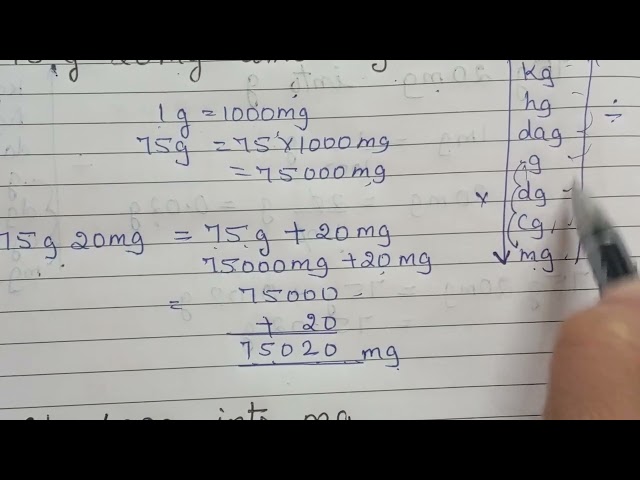 1g = 1000mg
75g = 75×1000mg
= 75000mg
75g 20mg = 75g + 20mg
75000mg + 20mg
= 75000
+ 20
75020 mg
into mg
kg
hg
dag
÷
g
× dg
cg
mg